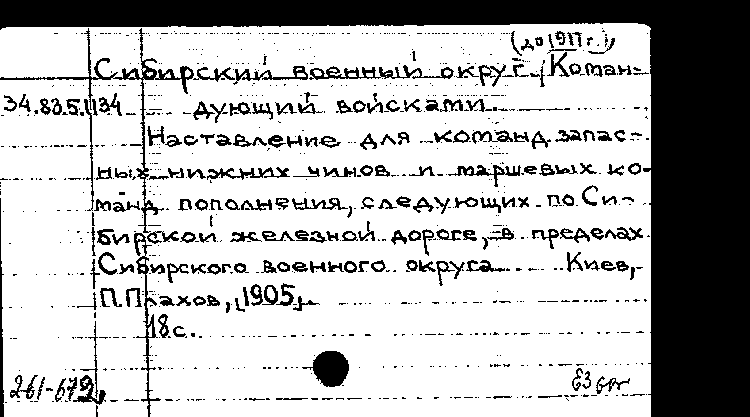 (до 1917 г.),
Сибирский военный округ. Коман-
34.83.5.1134 дующий войсками.
Наставление для команд запас-
ных нижних чинов и маршевых ко-
манд пополнения, следующих по Си-
бирской железной дороге, в пределах
Сибирского военного округа. Киев,
П. Плахов, [1905].
18 с.
261-679,